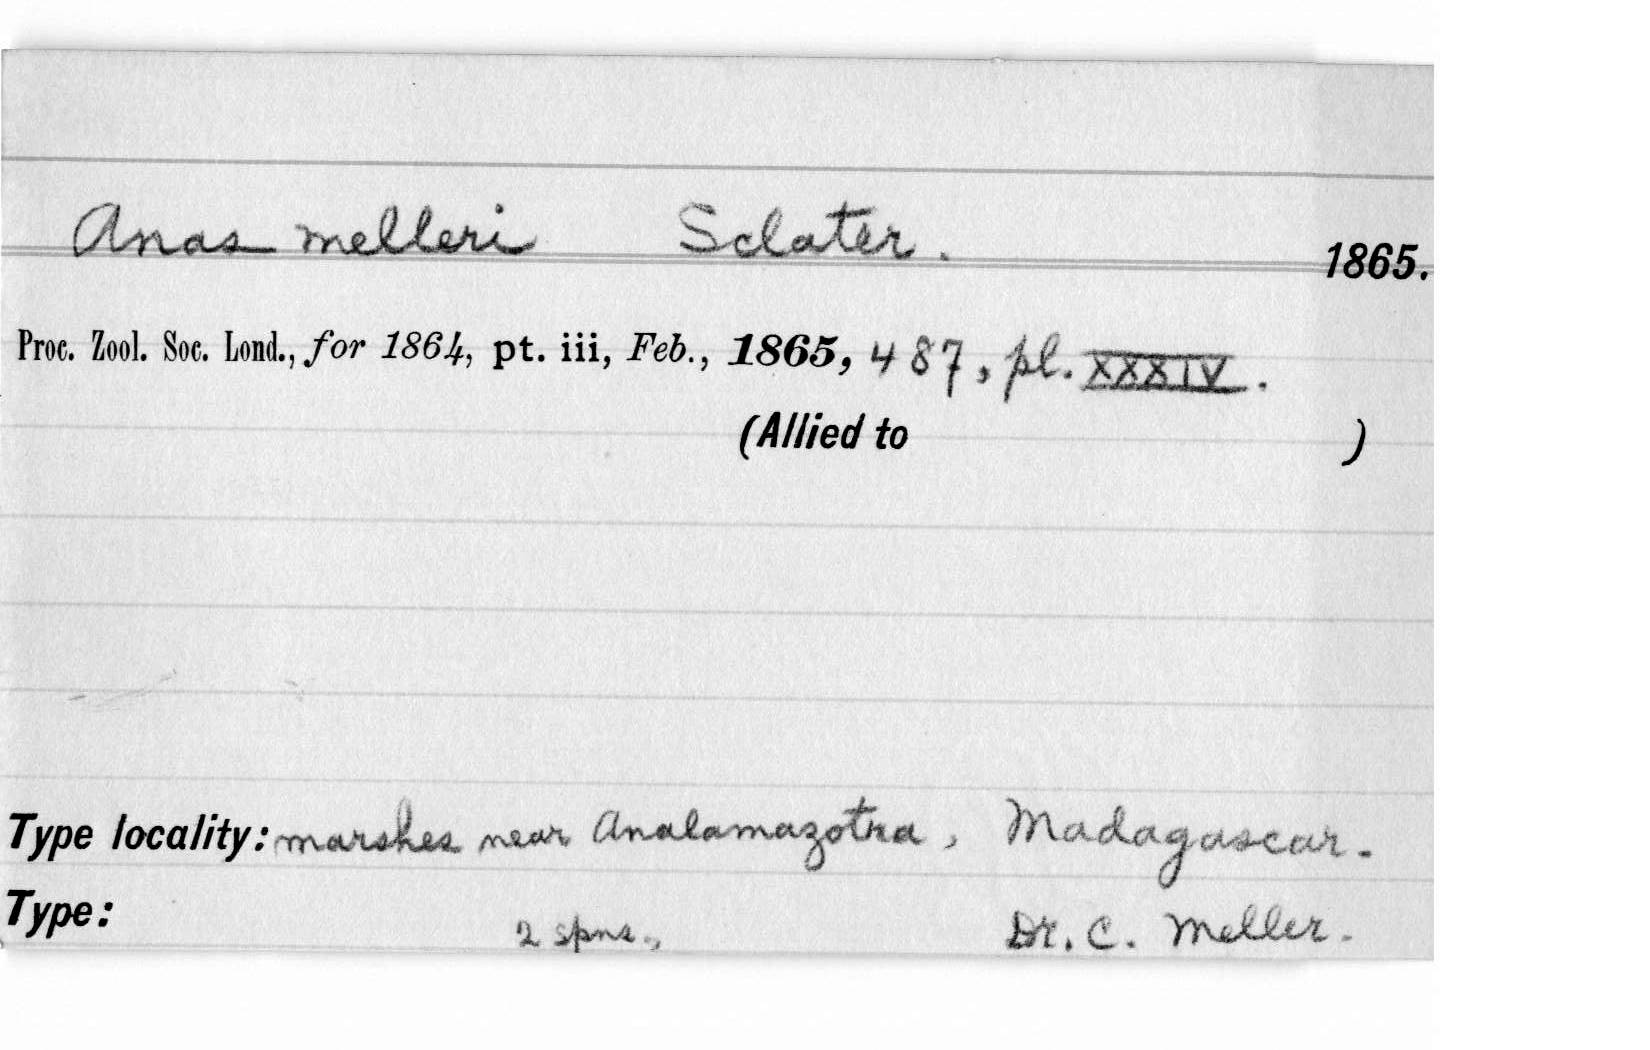 Anas melleri Sclater. 1865.
Proc. Zool. Soc. Lond., for 1864, pt. iii, Feb., 1865, 487, pl. XXXIV.
(Allied to )
Type locality: marshes near Analamazotra, Madagascar.
Type: 2 spms., Dr. C. Meller.